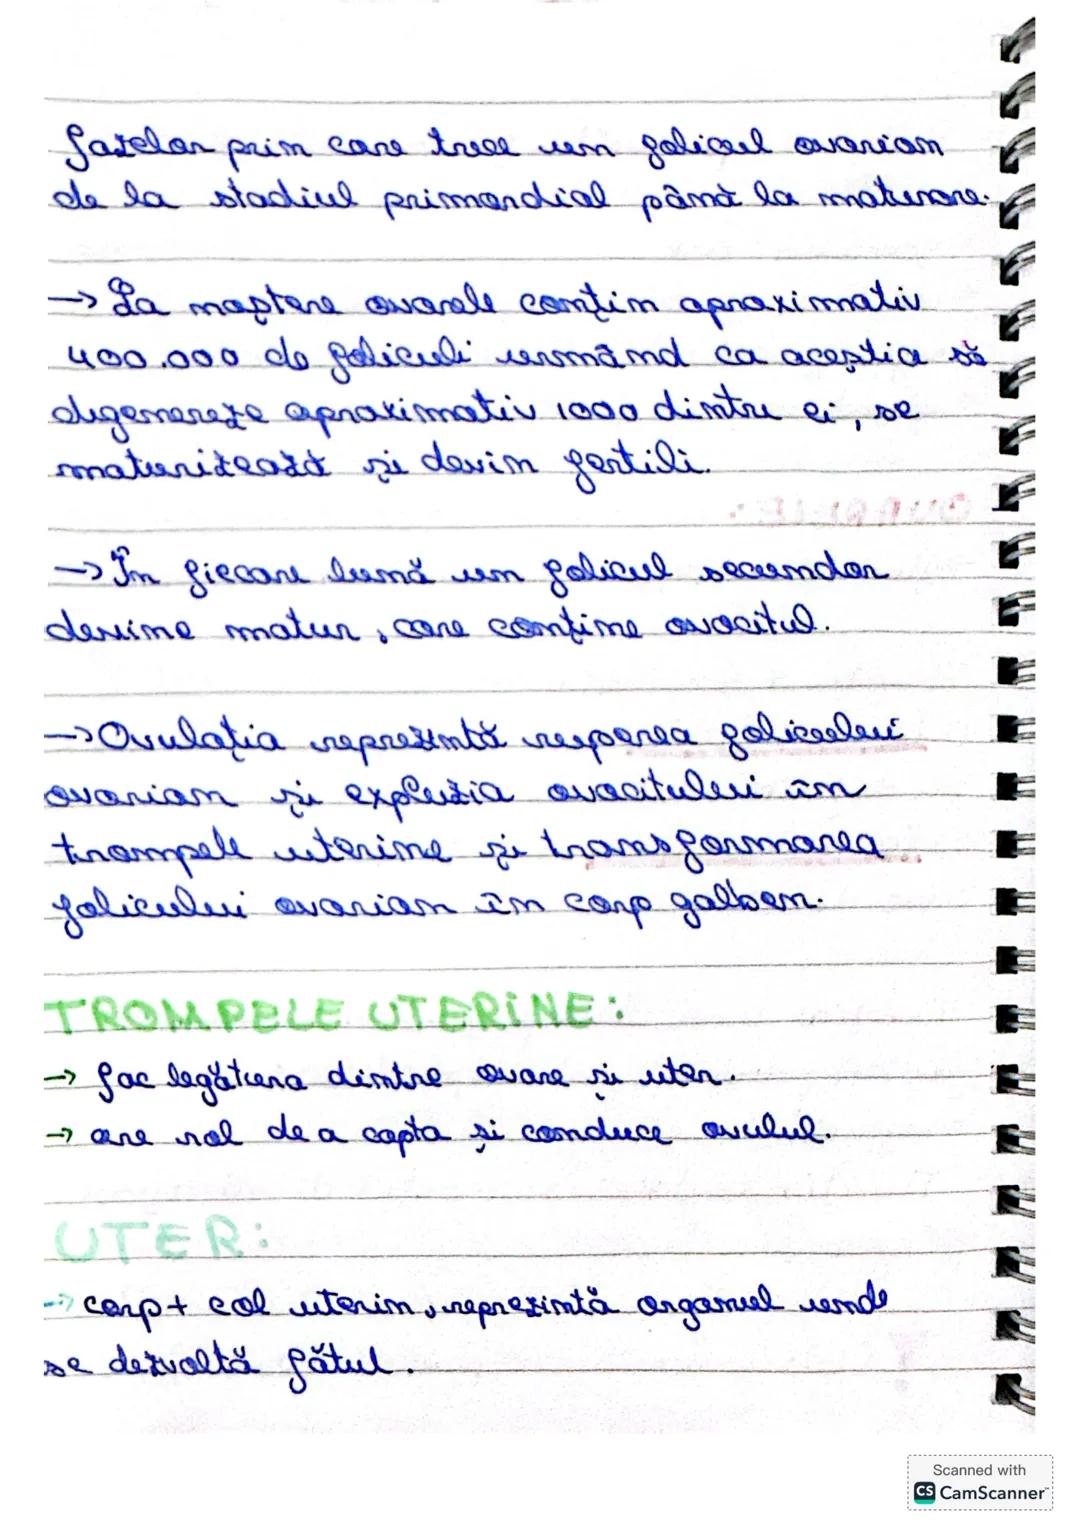 fazelor prin care trece un folicul ovarian
de la stadiul primordial până la maturare.
→ La naștere ovarele conțin aproximativ
400.000 de foliculi urmând ca aceștia să
degenereze aproximativ 1000 dintre ei, se
maturizează și devin fertili.
→ În fiecare lună un folicul secundar
devine matur, care conține ovocitul.
→ Ovulația reprezintă ruperea foliculului
ovarian și expluzia ovocitului în
trompele uterine și transformarea
foliculului ovarian în corp galben.
TROMPELE UTERINE:
→ fac legătura dintre ovare și uter.
→ are rol de a capta și conduce ovulul.
UTER:
→ corp + col uterin, reprezintă organul unde
se dezvoltă fătul.
Scanned with
CS CamScanner